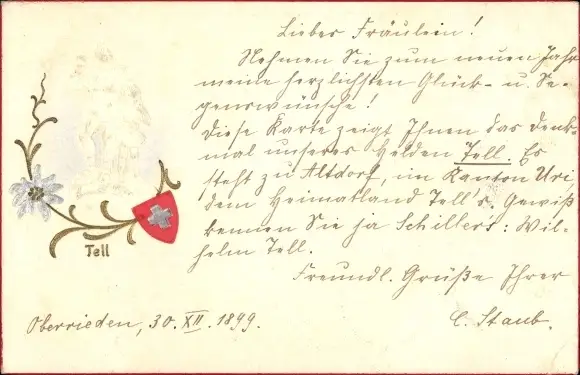 Liebes Fräulein!
Nehmen Sie zum neuen Jahr
meine herzlichsten Glück- u. Se-
genswünsche!
Diese Karte zeigt Ihnen das Denk-
mal unseres Helden Tell. Es
steht zu Altdorf, im Kanton Uri,
dem Heimatland Tell's. Gewiß
kennen Sie ja Schillers: Wil-
helm Tell.
Freundl. Grüße Ihrer
C. Staub.
Tell
Oberrieden, 30. XII. 1899.